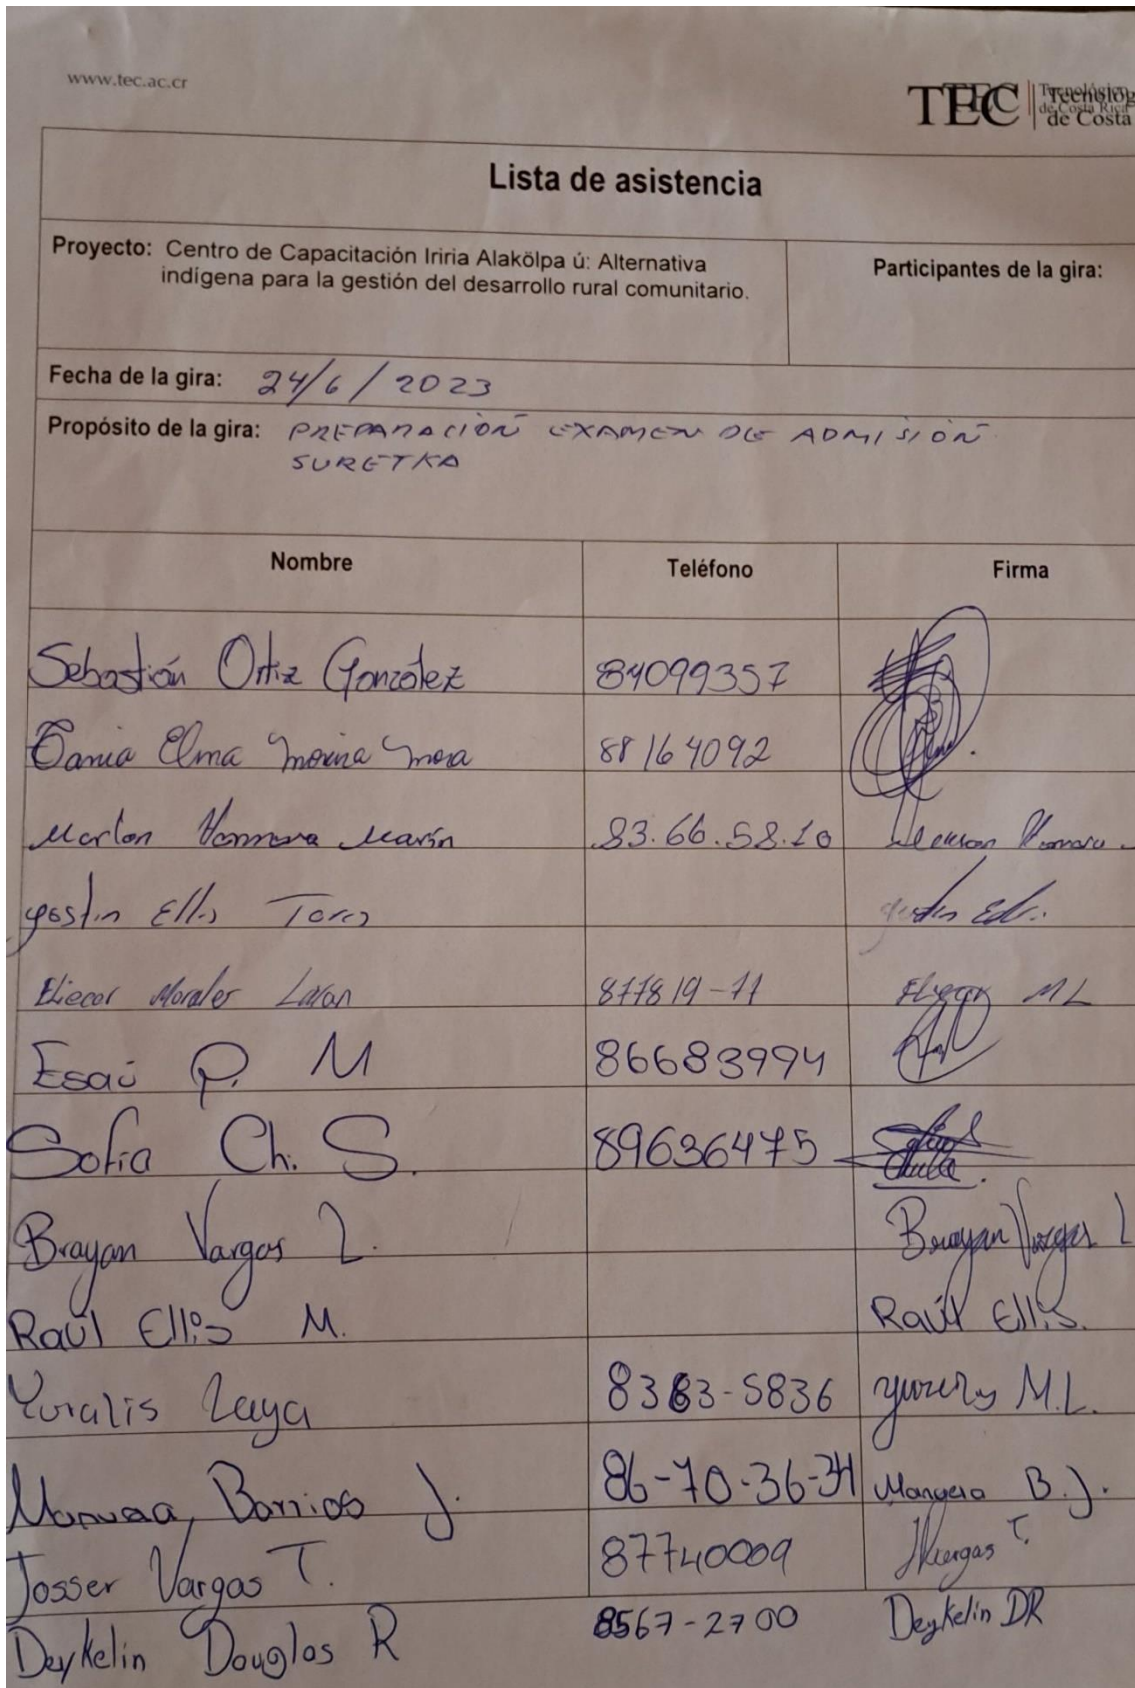 www.tec.ac.cr
TEC
de Costa
Lista de asistencia
Proyecto: Centro de Capacitación Iriria Alakölpa ú: Alternativa
indígena para la gestión del desarrollo rural comunitario.
Participantes de la gira:
Fecha de la gira: 24/6/2023
Propósito de la gira: PREPARACIÓN EXAMEN DE ADMISIÓN
SURETKA
Nombre Teléfono Firma
Sebastián Ortiz González 84099357
Tania Elma Mora 88164092
Marlon Marín 83.66.58.10
Yostin Ellis Torres
Eliecer Morales 877819-11 ML
Esaú P. M 86683994
Sofia Ch. S. 89636475
Brayan Vargas L. Brayan Vargas L
Raúl Ellis M. Raúl Ellis.
Yuralis Laya 8383-5836 M.L.
Barrios J. 86-70-36-34 B.J.
Josser Vargas T. 87740009 JVargas T.
Deykelin Douglas R 8567-2700 Deykelin DR